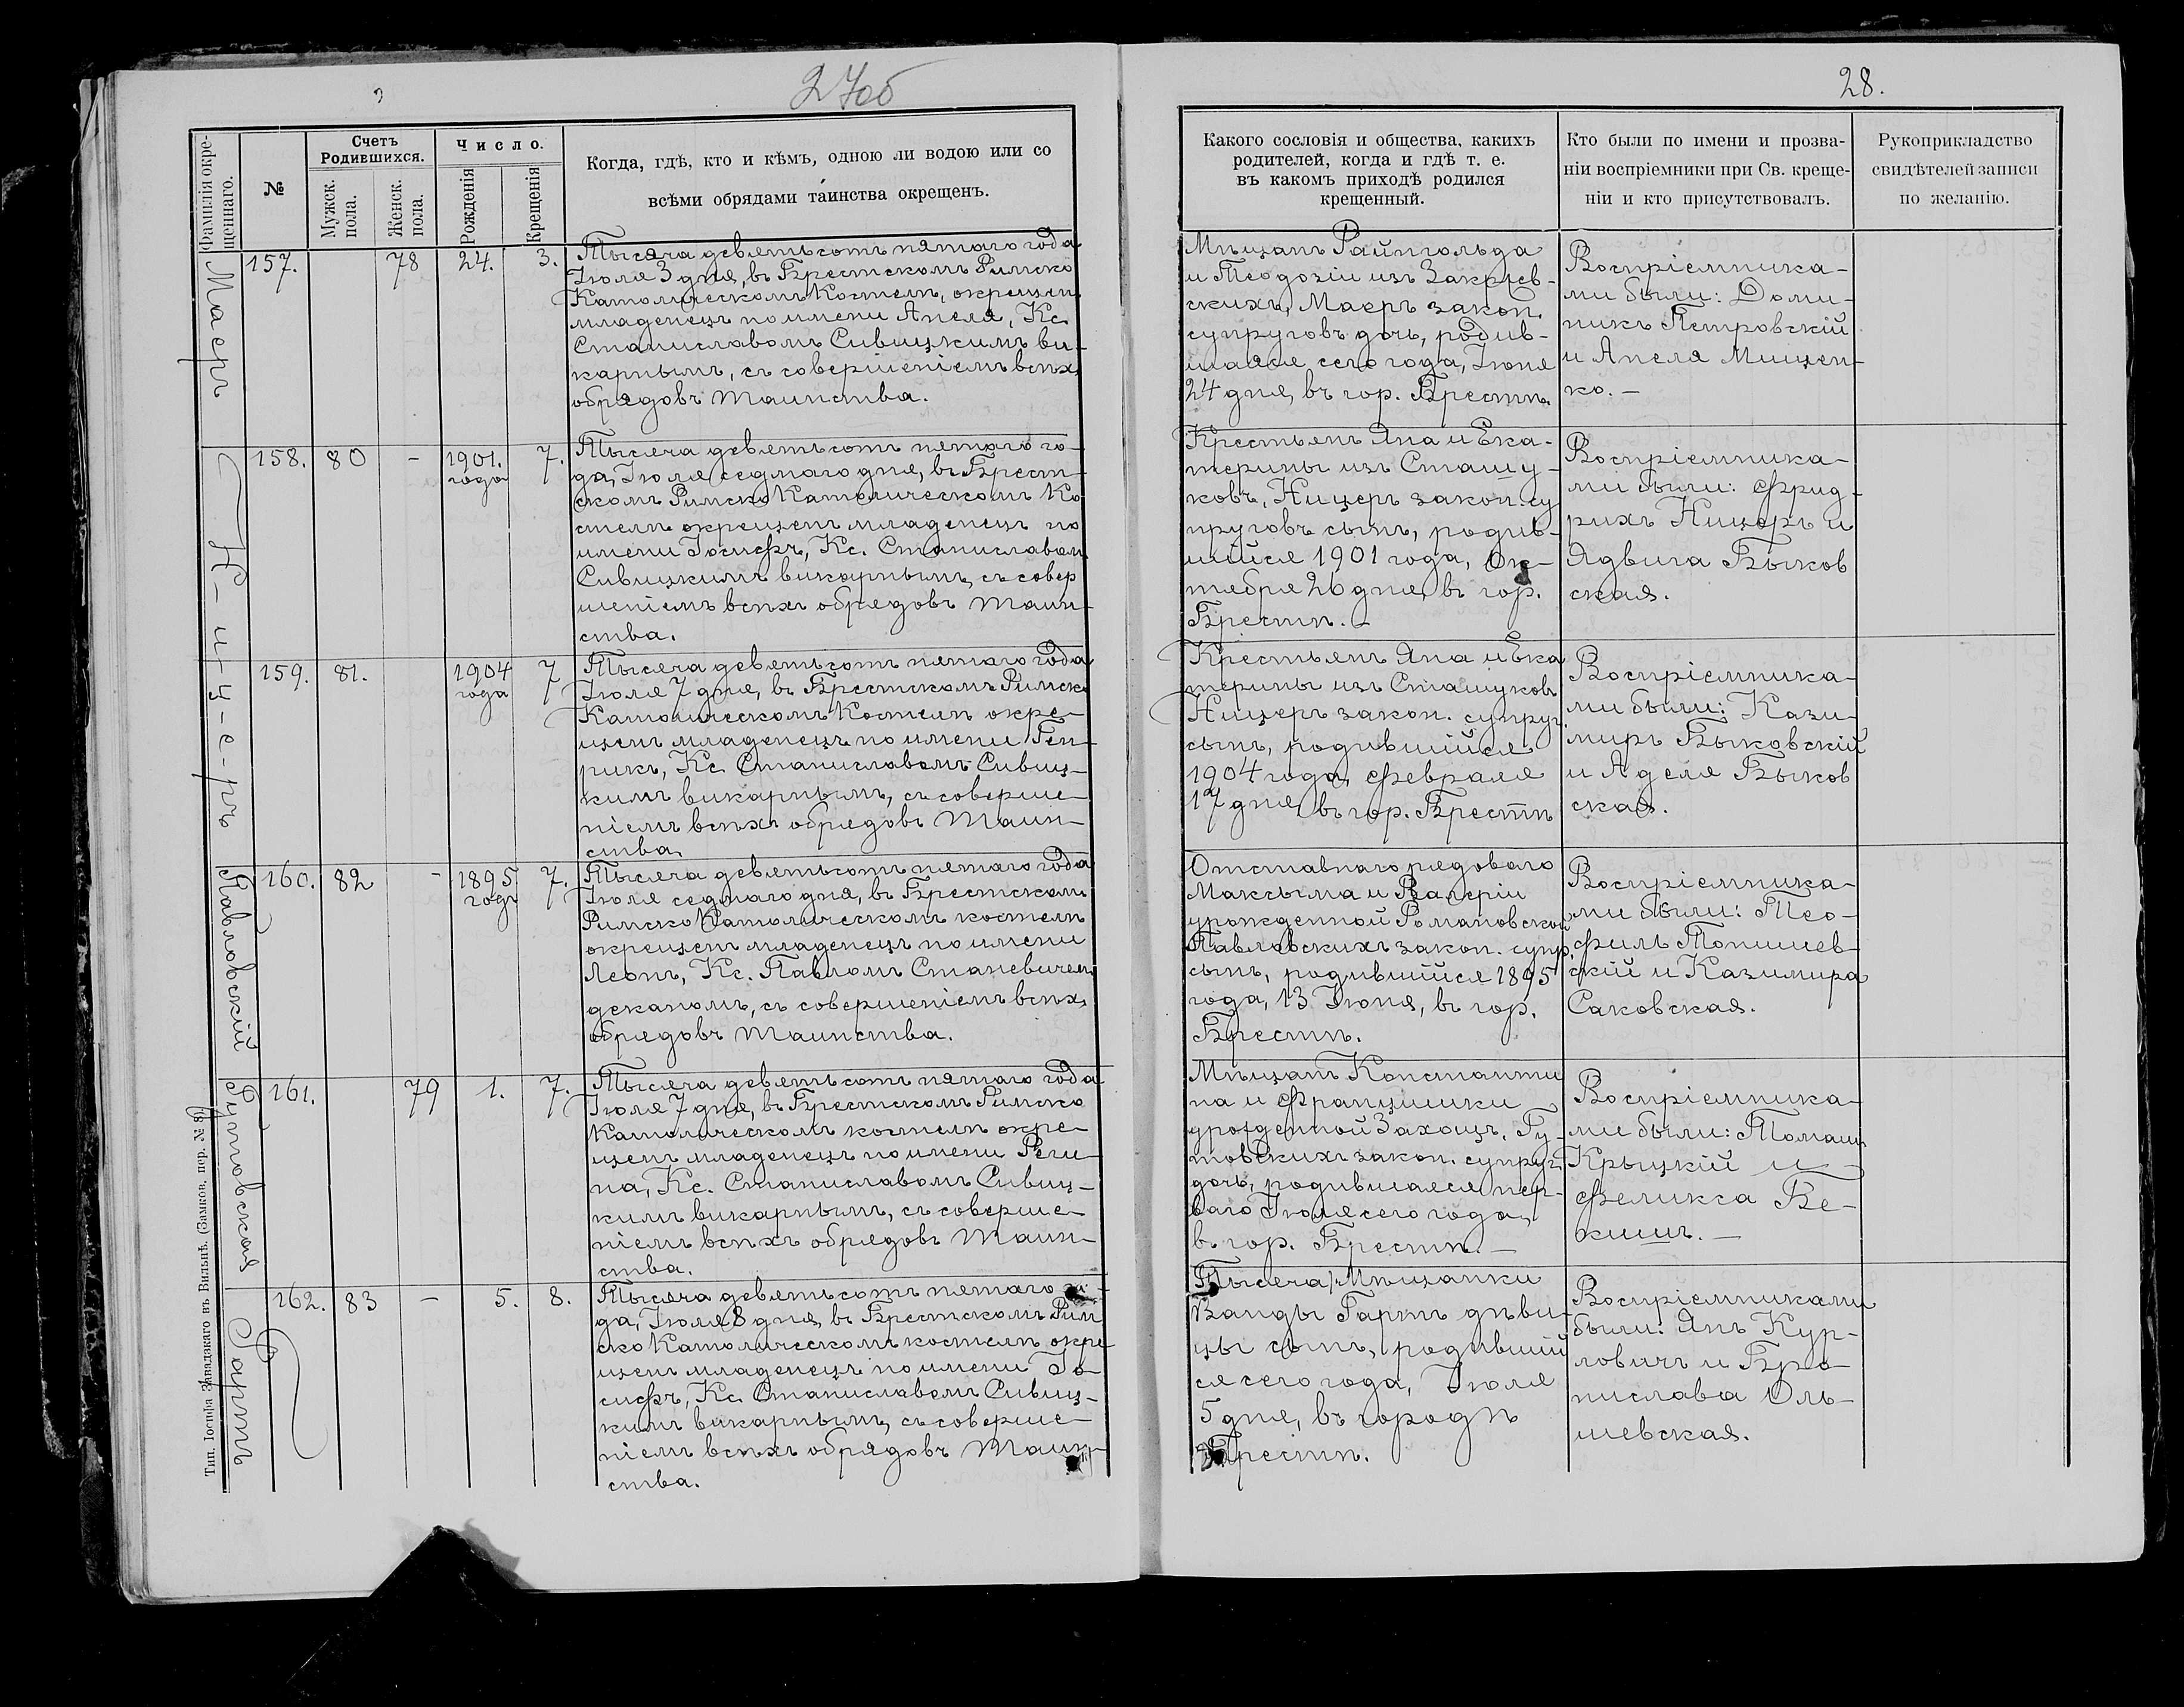 27об
28.
Фамилія окре-
щеннаго.
№
Счетъ
Родившихся.
Мужск.
пола.
Женск.
пола.
Число.
Рожденія
Крещенія
Когда, гдѣ, кто и кѣмъ, одною ли водою или со
всѣми обрядами таинства окрещенъ.
Какого сословія и общества, какихъ
родителей, когда и гдѣ т. е.
въ какомъ приходѣ родился
крещенный.
Кто были по имени и прозва-
ніи воспріемники при Св. креще-
ніи и кто присутствовалъ.
Рукоприкладство
свидѣтелей записи
по желанію.
Маеръ
157.
78
24.
3.
Тысяча девятьсотъ пятаго года
Іюля 3 дня, въ Брестскомъ Римско
Католическомъ Костелѣ, окрещен
младенецъ по имени Анеля, Кс.
Станиславомъ Сивицкимъ ви-
карнымъ, съ совершеніемъ всѣхъ
обрядовъ таинства.
Мѣщанъ Райнгольда
и Теодозіи изъ Закрев-
скихъ, Маеръ закон.
супруговъ дочь, родив-
шаяся сего года, Іюня
24 дня, въ гор. Брестѣ.
Воспріемника-
ми были: Доми-
никъ Петровскій
и Анеля Мищен-
ко. –
Н-и-ц-е-ръ
158.
80
-
1901.
года
7.
Тысяча девятьсотъ пятаго го-
да, Іюля седмаго дня, въ Брест-
скомъ Римско Католическомъ Ко
стелѣ окрещенъ младенецъ по
имени Іосифъ, Кс. Станиславом
Сивицкимъ викарнымъ, съ совер
шеніемъ всѣхъ обрядовъ таин-
ства.
Крестьянъ Яна и Ека-
терины изъ Сташу-
ковъ, Ницеръ закон. су
пруговъ сынъ, родив-
шійся 1901 года, Ок-
тября 26 дня, въ гор.
Брестѣ. –
Воспріемника-
ми были: Фрид-
рихъ Ницеръ и
Ядвига Быков
ская.
159.
81.
1904
года
7
Тысяча девятьсотъ пятаго года
Іюля 7 дня, въ Брестскомъ Римск
Католическомъ Костелѣ окре-
щенъ младенецъ по имени Ген-
рикъ, Кс. Станиславомъ Сивиц-
кимъ викарнымъ, съ соверше-
ніемъ всѣхъ обрядовъ таин-
ства.
Крестьянъ Яна и Ека
терины изъ Сташуковъ
Ницеръ закон. супруг.
сынъ, родившійся
1904 года, Февраля
17 дня, въ гор. Брестѣ
Воспріемника-
ми были: Кази-
миръ Быковскій
и Аделя Быков
ская.
Павловскій
160.
82
-
1895
годъ
7.
Тысяча девятьсотъ пятаго года
Іюля седмаго дня, въ Брестском
Римско Католическомъ костелѣ
окрещенъ младенецъ по имени
Леонъ, Кс. Павломъ Станевичем
деканомъ, съ совершеніемъ всѣхъ
обрядовъ таинства.
Отставного рядового
Максыма и Валеріи
урожденной Романовской
Павловскихъ закон. супр.
сынъ, родившійся 1895
года, 13 Іюня, въ гор.
Брестѣ.
Воспріемника-
ми были: Тео-
филъ Топишев-
скій и Казимира
Саковская.
Гутовская
161.
79
1.
7.
Тысяча девятьсотъ пятаго года
Іюля 7 дня, въ Брестскомъ Римско
Католическомъ костелѣ окре-
щенъ младенецъ по имени Реги-
на, Кс. Станиславомъ Сивиц-
кимъ викарнымъ, съ соверше-
ніемъ всѣхъ обрядовъ таин-
ства.
Мѣщанъ Константи
на и Францишки
урожденной Захощъ, Гу-
товскихъ закон. супруг.
дочь, родившаяся пер-
ваго Іюля сего года,
въ гор. Брестѣ. –
Воспріемника-
ми были: Томаш
Крыцкій и
Феликса Бе-
кишъ. –
Гартъ
162.
83
-
5.
8.
Тысяча девятьсотъ пятаго го-
да, Іюля 8 дня, въ Брестскомъ Рим
ско Католическомъ костелѣ окре
щенъ младенецъ по имени Іо-
сифъ, Кс. Станиславомъ Сивиц-
кимъ викарнымъ, съ соверше-
ніемъ всѣхъ обрядовъ таин-
ства.
Тысяча) Мѣщанки
Ванды Гартъ дѣви-
цы сынъ, родившій
ся сего года, Іюля
5 дня, въ городѣ
Брестѣ.
Воспріемниками
были: Янъ Кур-
ловичъ и Бро-
нислава Оль-
шевская.
Тип. Іосифа Завадзкаго въ Вильнѣ. (Замков. пер. № 8)